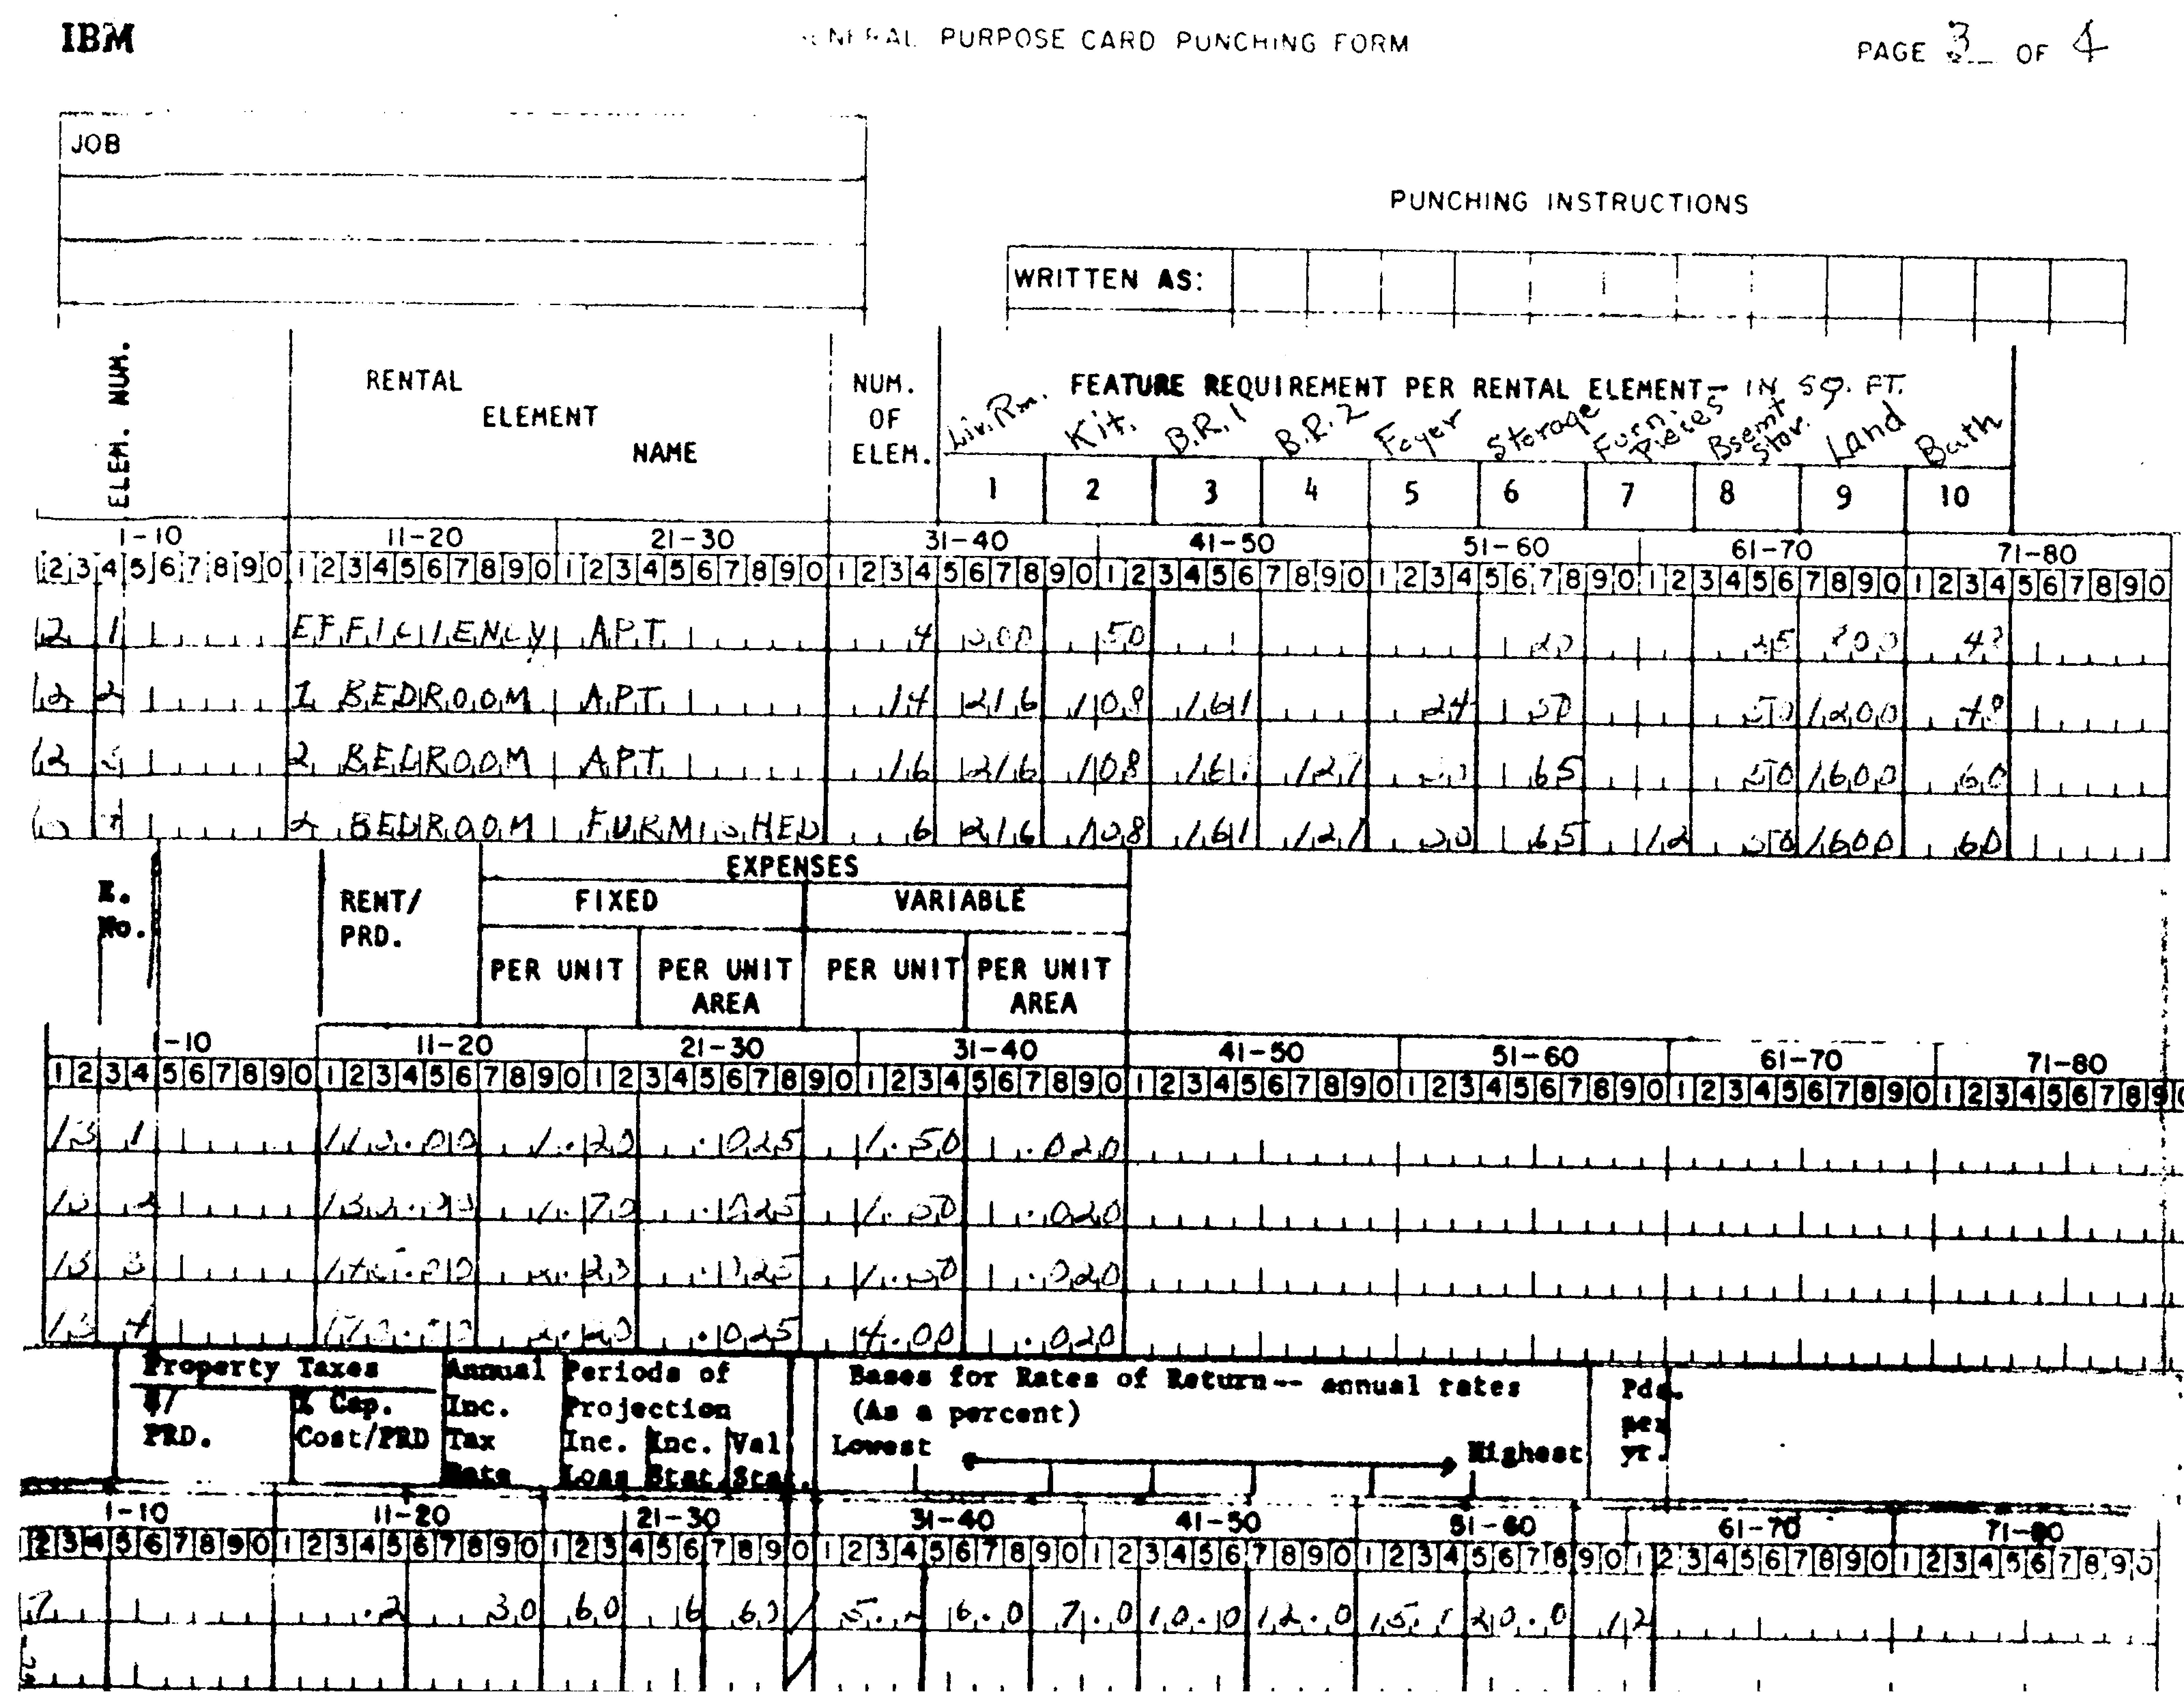 IBM
PURPOSE CARD PUNCHING FORM
PAGE 3 OF 4
JOB
PUNCHING INSTRUCTIONS
WRITTEN AS:
ELEM. NUM.
RENTAL ELEMENT NAME
NUM. OF ELEM.
FEATURE REQUIREMENT PER RENTAL ELEMENT - IN SQ. FT.
Liv. Rm. Kit. B.R. 1 B.R. 2 Foyer Storage Furn. Pieces Bsemt Stor. Land Bath
1 2 3 4 5 6 7 8 9 10
1-10 11-20 21-30 31-40 41-50 51-60 61-70 71-80
1234567890 1234567890 1234567890 1234567890 1234567890 1234567890 1234567890
12 1 EFFICIENCY APT 4 50 20 25 800
12 2 1 BEDROOM APT 14 216 108 161 24 50 50 1200 48
12 3 2 BEDROOM APT 16 216 108 161 121 65 50 1600 60
4 2 BEDROOM FURNISHED 6 216 108 161 121 30 65 12 50 1600 60
E. No.
RENT/ PRD.
EXPENSES
FIXED VARIABLE
PER UNIT PER UNIT AREA PER UNIT PER UNIT AREA
-10 11-20 21-30 31-40 41-50 51-60 61-70 71-80
1234567890 1234567890 1234567890 1234567890 1234567890 1234567890 1234567890 123456789
13 1 1.20 .025 1.50 .020
13 2 1.70 .025 1.50 .020
13 3 .025 1.50 .020
13 4 2.20 .025 4.00 .020
Property Taxes
$/ PRD.
% Cap. Cost/PRD
Annual Inc. Tax Rate
Periods of Projection
Inc. Loss Inc. Stat. Val Stat.
Bases for Rates of Return -- annual rates
(As a percent)
Lowest Highest
Pds. per yr.
1-10 11-20 21-30 31-40 41-50 51-60 61-70 71-80
234567890 1234567890 1234567890 1234567890 1234567890 1234567890 1234567890 1234567890
.2 30 60 6 60 6.0 7.0 10.0 12.0 20.0 12